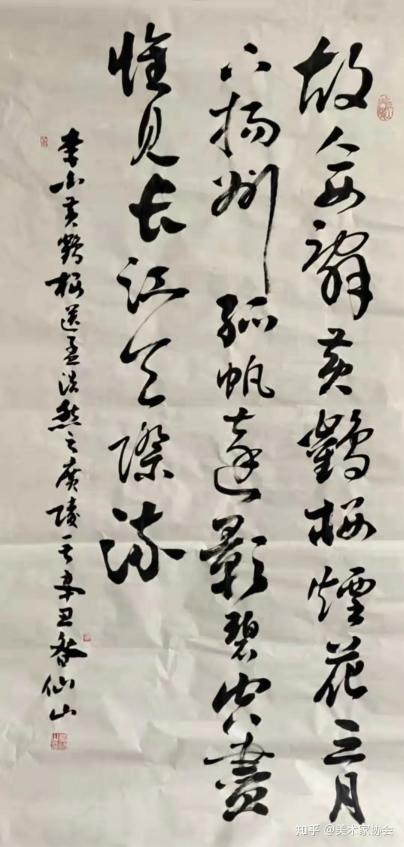 故人西辭黄鶴楼煙花三月
下揚州孤帆遠影碧空盡
惟见长江天際流
李白黄鶴楼送孟浩然之廣陵辛丑春仙山
知乎 @美术家协会